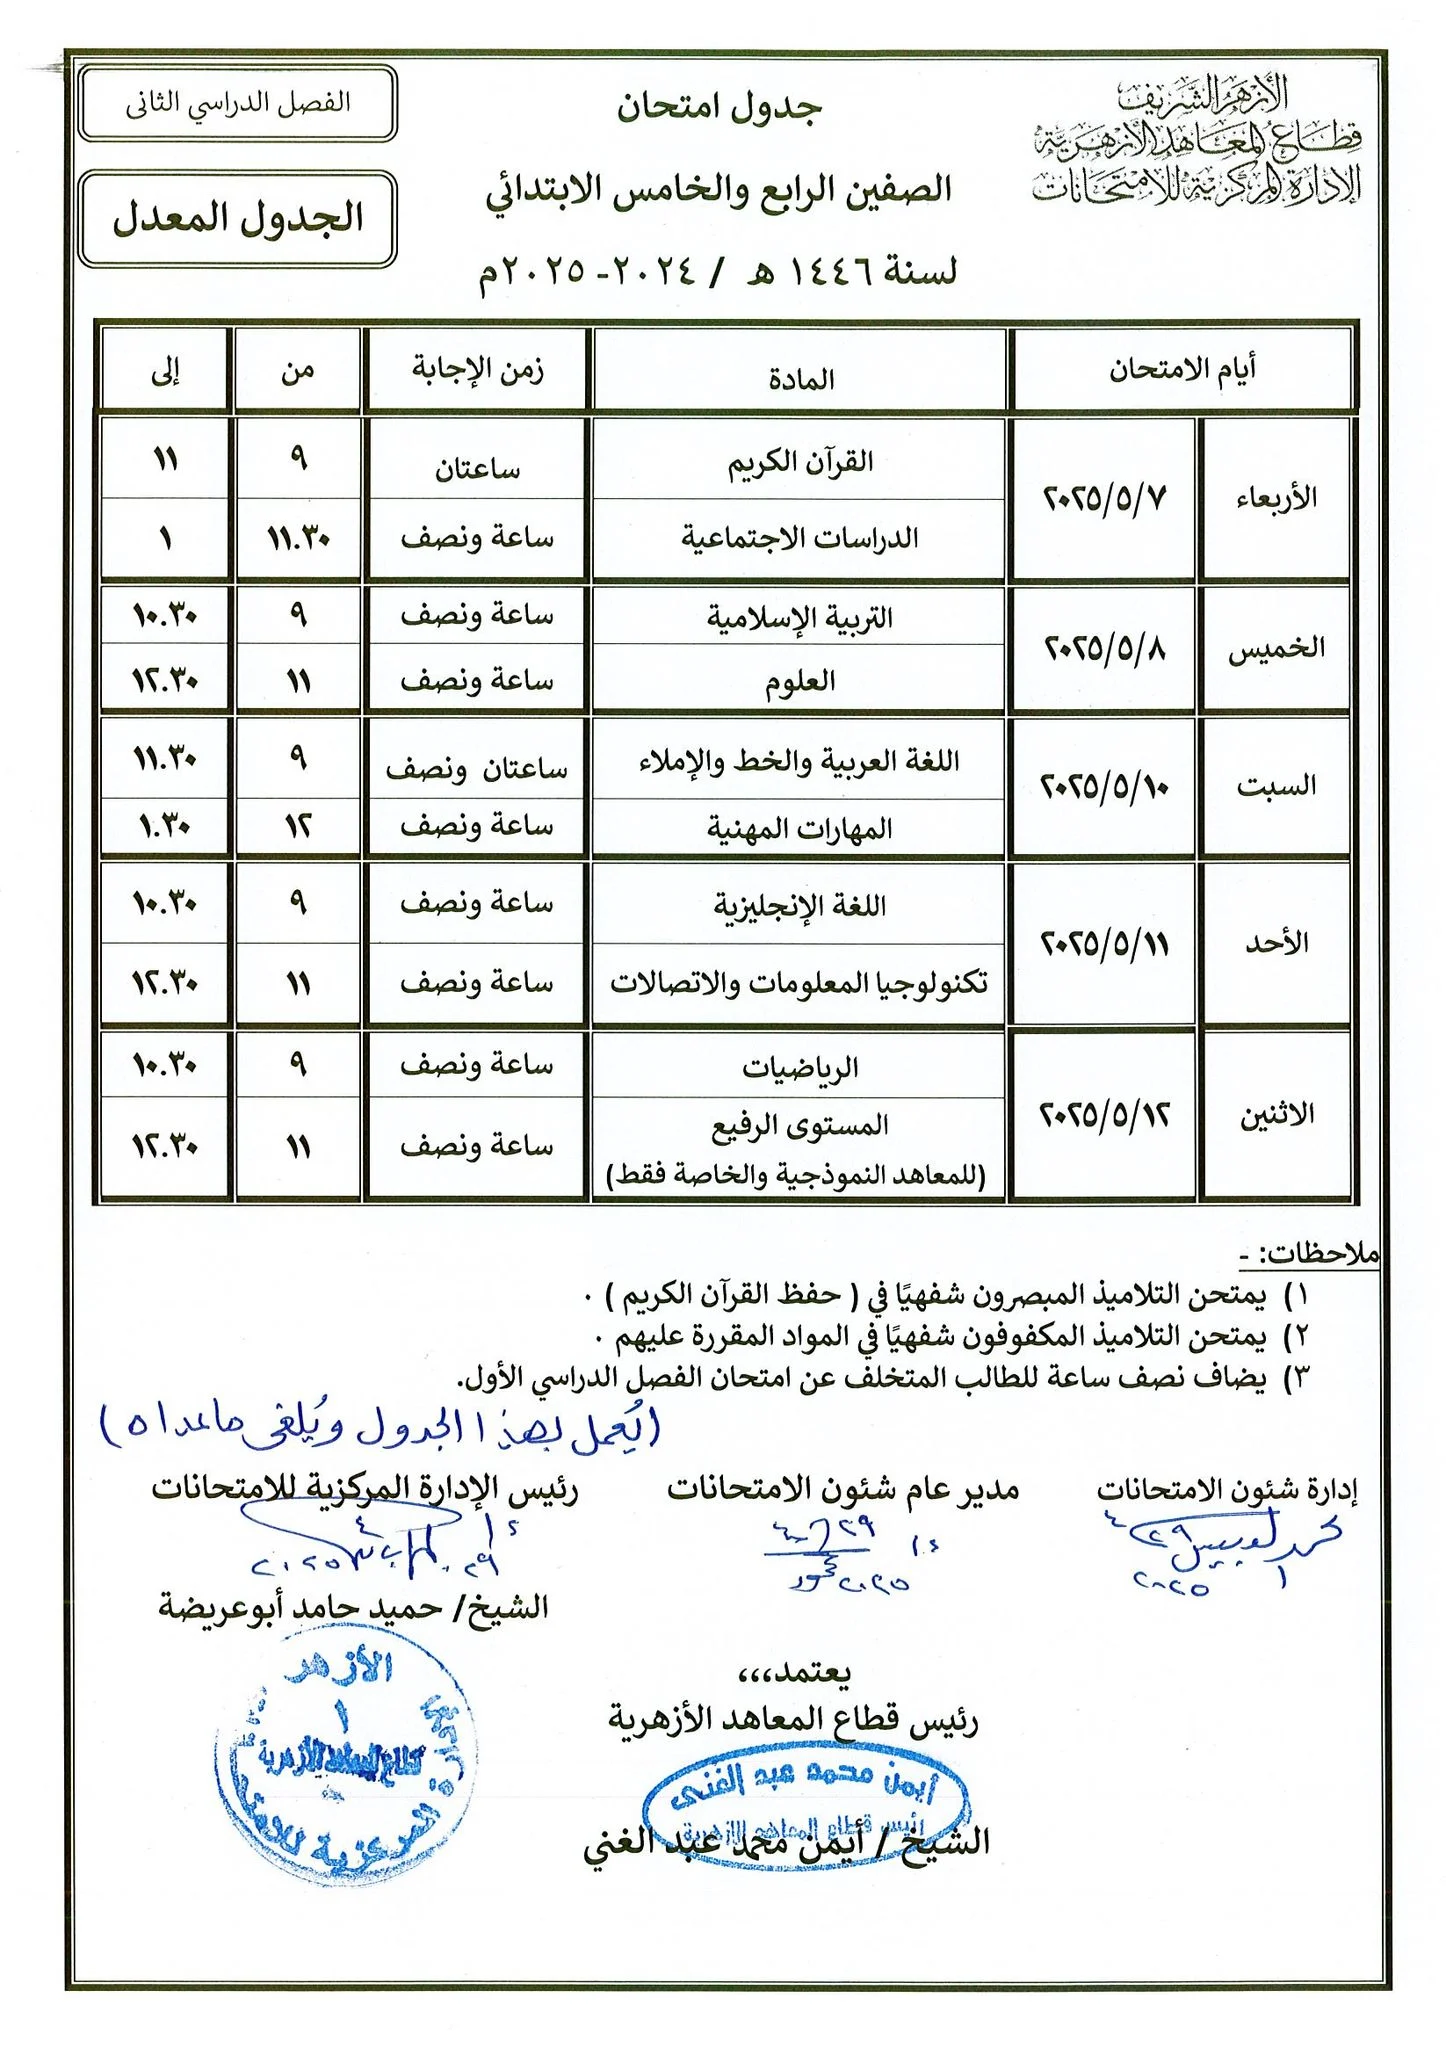 الأزهر الشريف
قطاع المعاهد الأزهرية
الإدارة المركزية للامتحانات
جدول امتحان
الصفين الرابع والخامس الابتدائي
لسنة ١٤٤٦ ه / ٢٠٢٤- ٢٠٢٥م
الفصل الدراسي الثانى
الجدول المعدل
أيام الامتحان المادة زمن الإجابة من إلى
الأربعاء ٢٠٢٥/٥/٧ القرآن الكريم ساعتان ٩ ١١
الدراسات الاجتماعية ساعة ونصف ١١.٣٠ ١
الخميس ٢٠٢٥/٥/٨ التربية الإسلامية ساعة ونصف ٩ ١٠.٣٠
العلوم ساعة ونصف ١١ ١٢.٣٠
السبت ٢٠٢٥/٥/١٠ اللغة العربية والخط والإملاء ساعتان ونصف ٩ ١١.٣٠
المهارات المهنية ساعة ونصف ١٢ ١.٣٠
الأحد ٢٠٢٥/٥/١١ اللغة الإنجليزية ساعة ونصف ٩ ١٠.٣٠
تكنولوجيا المعلومات والاتصالات ساعة ونصف ١١ ١٢.٣٠
الاثنين ٢٠٢٥/٥/١٢ الرياضيات ساعة ونصف ٩ ١٠.٣٠
المستوى الرفيع
(للمعاهد النموذجية والخاصة فقط) ساعة ونصف ١١ ١٢.٣٠
ملاحظات: -
١) يمتحن التلاميذ المبصرون شفهيًا في ( حفظ القرآن الكريم ) ٠
٢) يمتحن التلاميذ المكفوفون شفهيًا في المواد المقررة عليهم ٠
٣) يضاف نصف ساعة للطالب المتخلف عن امتحان الفصل الدراسي الأول.
(يُعمل بهذا الجدول ويُلغى ماعداه)
إدارة شئون الامتحانات مدير عام شئون الامتحانات رئيس الإدارة المركزية للامتحانات
الشيخ/ حميد حامد أبوعريضة
يعتمد،،،
رئيس قطاع المعاهد الأزهرية
أيمن محمد عبد الغنى
رئيس قطاع المعاهد الازهرية
الشيخ / أيمن محمد عبد الغني
الأزهر
١
قطاع المعاهد الأزهرية
المركزية للامتح